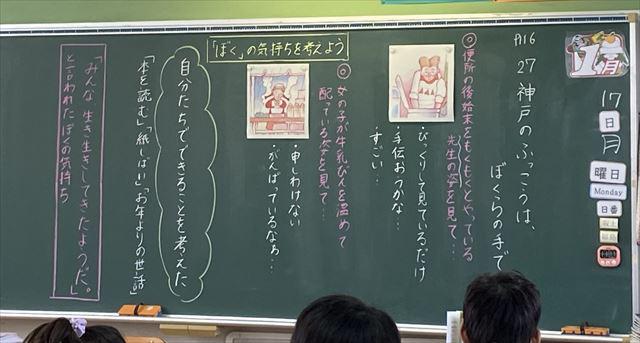 1月
17
日
月
曜日
Monday
日番
A16
27 神戸のふっこうは、
ぼくらの手で
「ぼく」の気持ちを考えよう
◎便所の後始末をもくもくとやっている
先生の姿を見て…
・びっくりして見ているだけ
・手伝おうかな…
・すごい…
◎女の子が牛乳びんを温めて
配っている姿を見て…
・申しわけない
・がんばっているなあ…
自分たちでできることを考えた
「本を読む」「紙しばい」「お年よりの世話」
「みんな生き生きしてきたようだ。」
と言われたぼくの気持ち